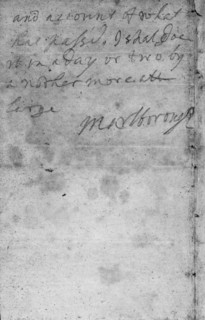 and account of what
has passed. I shal doe
it in a day or two by
another more att
large
Marlborough